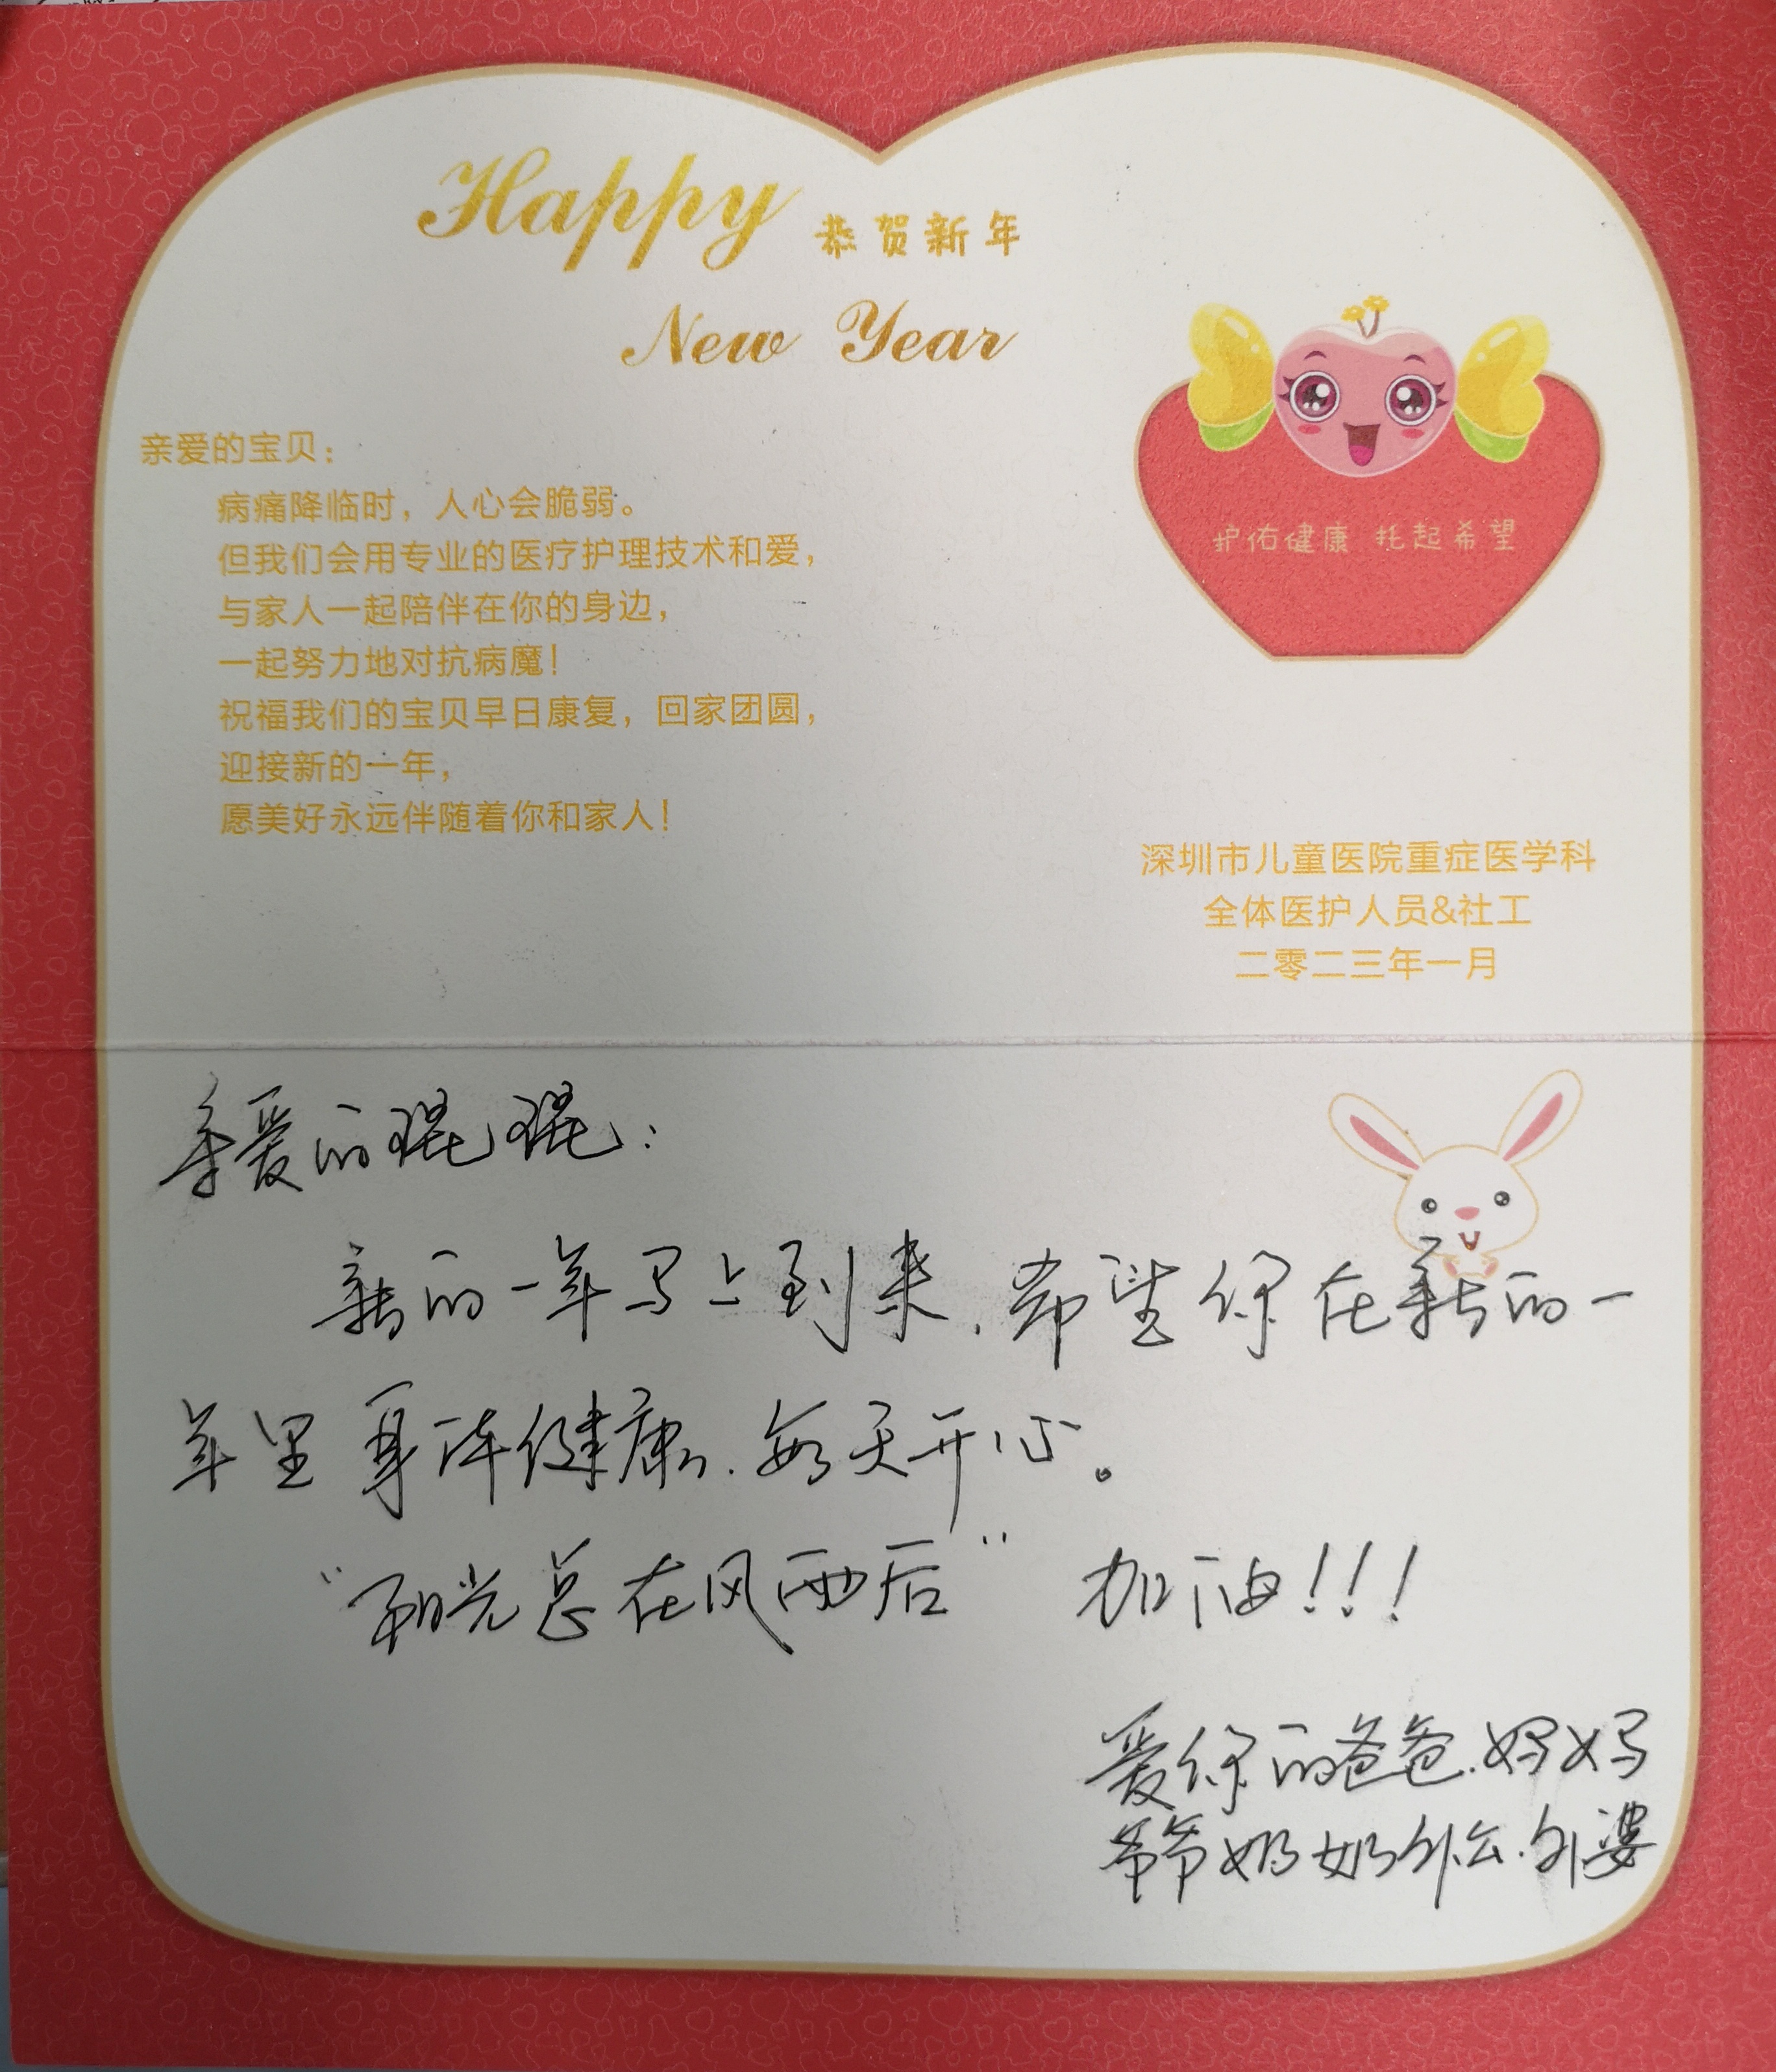 Happy 恭贺新年
New Year
亲爱的宝贝：
病痛降临时，人心会脆弱。
但我们会用专业的医疗护理技术和爱，
与家人一起陪伴在你的身边，
一起努力地对抗病魔！
祝福我们的宝贝早日康复，回家团圆，
迎接新的一年，
愿美好永远伴随着你和家人！
护佑健康 托起希望
深圳市儿童医院重症医学科
全体医护人员&社工
二零二三年一月
亲爱的琨琨：
新的一年马上到来，希望你在新的一
年里身体健康，每天开心。
“阳光总在风雨后” 加油！！！
爱你的爸爸.妈妈
爷爷奶奶外公.外婆